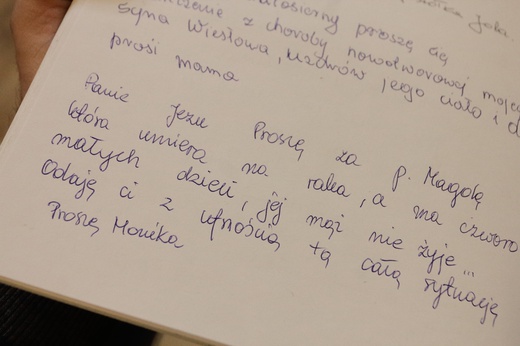 proszę cię
z choroby nowotworowej mojego
syna Wiesława, uzdrów jego ciało i d
prosi mama
Panie Jezu Proszę za p. Magdą
która umiera na raka, a ma czworo
małych dzieci, jej mąż nie żyje...
Oddaję ci z ufnością tą całą sytuację
Proszę Monika